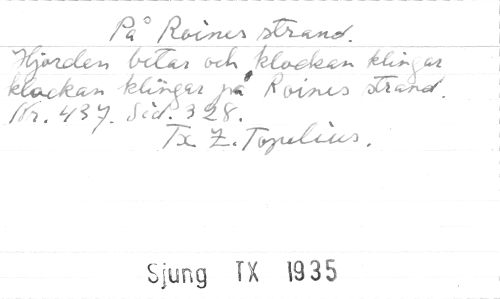 På Roines strand.
Hjorden betar och klockan klingar
klockan klingar på Roines strand.
Nr. 437. Sid. 328.
Tx Z. Topelius.
Sjung TX 1935